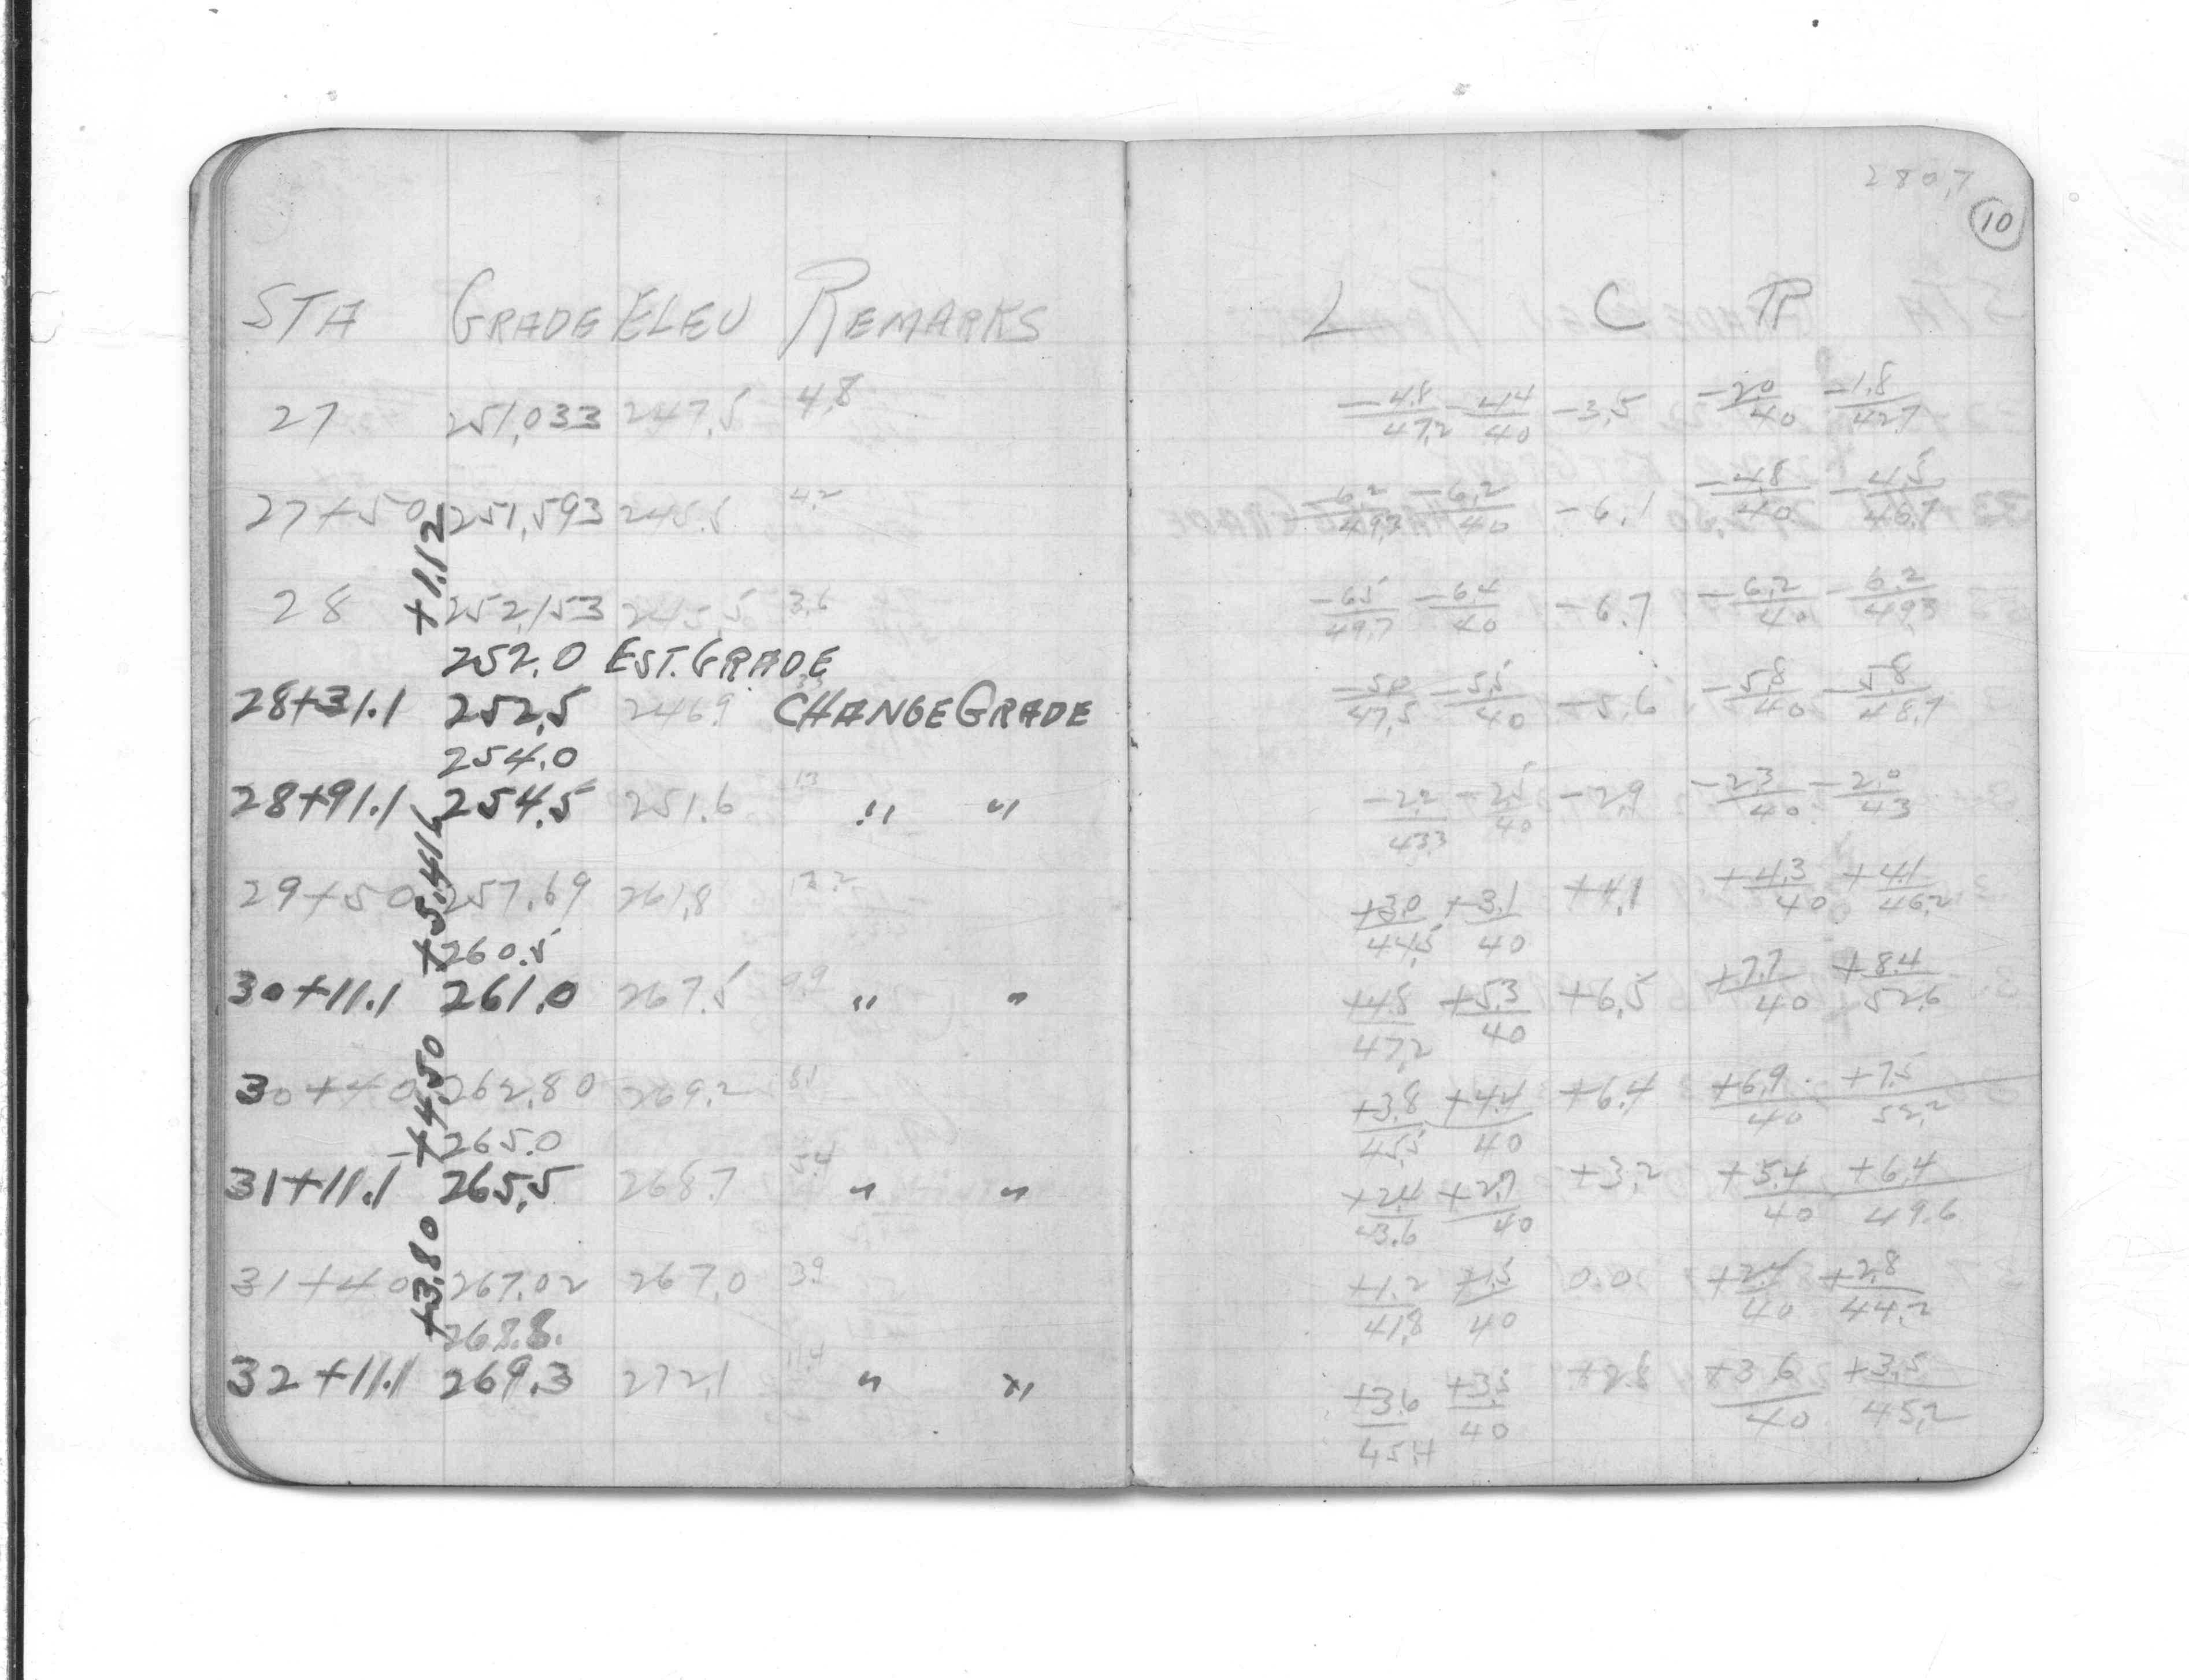 280.7
10
STA GRADE ELEV REMARKS L C R
27 251.033 247.5 4.8 -4.8/47.2 -4.4/40 -3.5 -2.0/40 -1.8/42.7
27+50 251.593 245.5 4.2 -6.2/49.3 -6.2/40 -6.1 -4.8/40 -4.5/46.7
+1.12
28 252.153 245.5 3.6 -6.5/49.7 -6.4/40 -6.7 -6.2/40 -6.2/49.3
252.0 EST. GRADE
28+31.1 252.5 246.9 CHANGE GRADE -5.0/47.5 -5.5/40 -5.6 -5.8/40 -5.8/48.7
254.0
28+91.1 254.5 251.6 1.3 " " -2.2/43.3 -2.5/40 -2.9 -2.3/40 -2.0/43
+5.416
29+50 257.69 261.8 12.2 +3.0/44.5 +3.1/40 +4.1 +4.3/40 +4.1/46.2
260.5
30+11.1 261.0 267.5 9.9 " " +4.8/47.2 +5.3/40 +6.5 +7.7/40 +8.4/52.6
+4.50
30+40 262.80 269.2 8.1 +3.8/45.5 +4.4/40 +6.4 +6.9/40 +7.5/52.2
265.0
31+11.1 265.5 268.7 5.4 " " +2.4/43.6 +2.7/40 +3.2 +5.4/40 +6.4/49.6
+3.80
31+40 267.02 267.0 3.9 +1.2/41.8 +1.5/40 0.0 +2.4/40 +2.8/44.2
268.8
32+11.1 269.3 272.1 11.4 " " +3.6/45.4 +3.5/40 +2.8 +3.6/40 +3.5/45.2